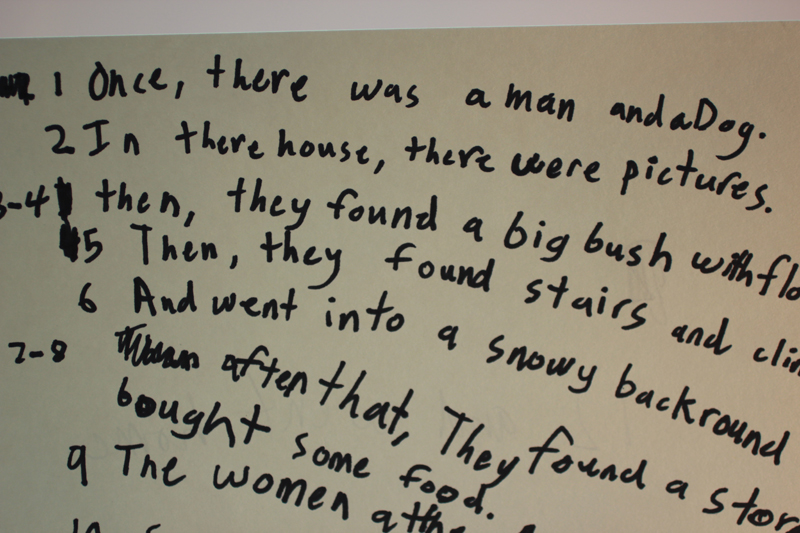 1 Once, there was a man and a Dog.
2 In there house, there were pictures.
3-4 then, they found a big bush with flo
5 Then, they found stairs and clim
6 And went into a snowy backround
7-8 aften that, They found a stor
bought some food.
9 The women at the